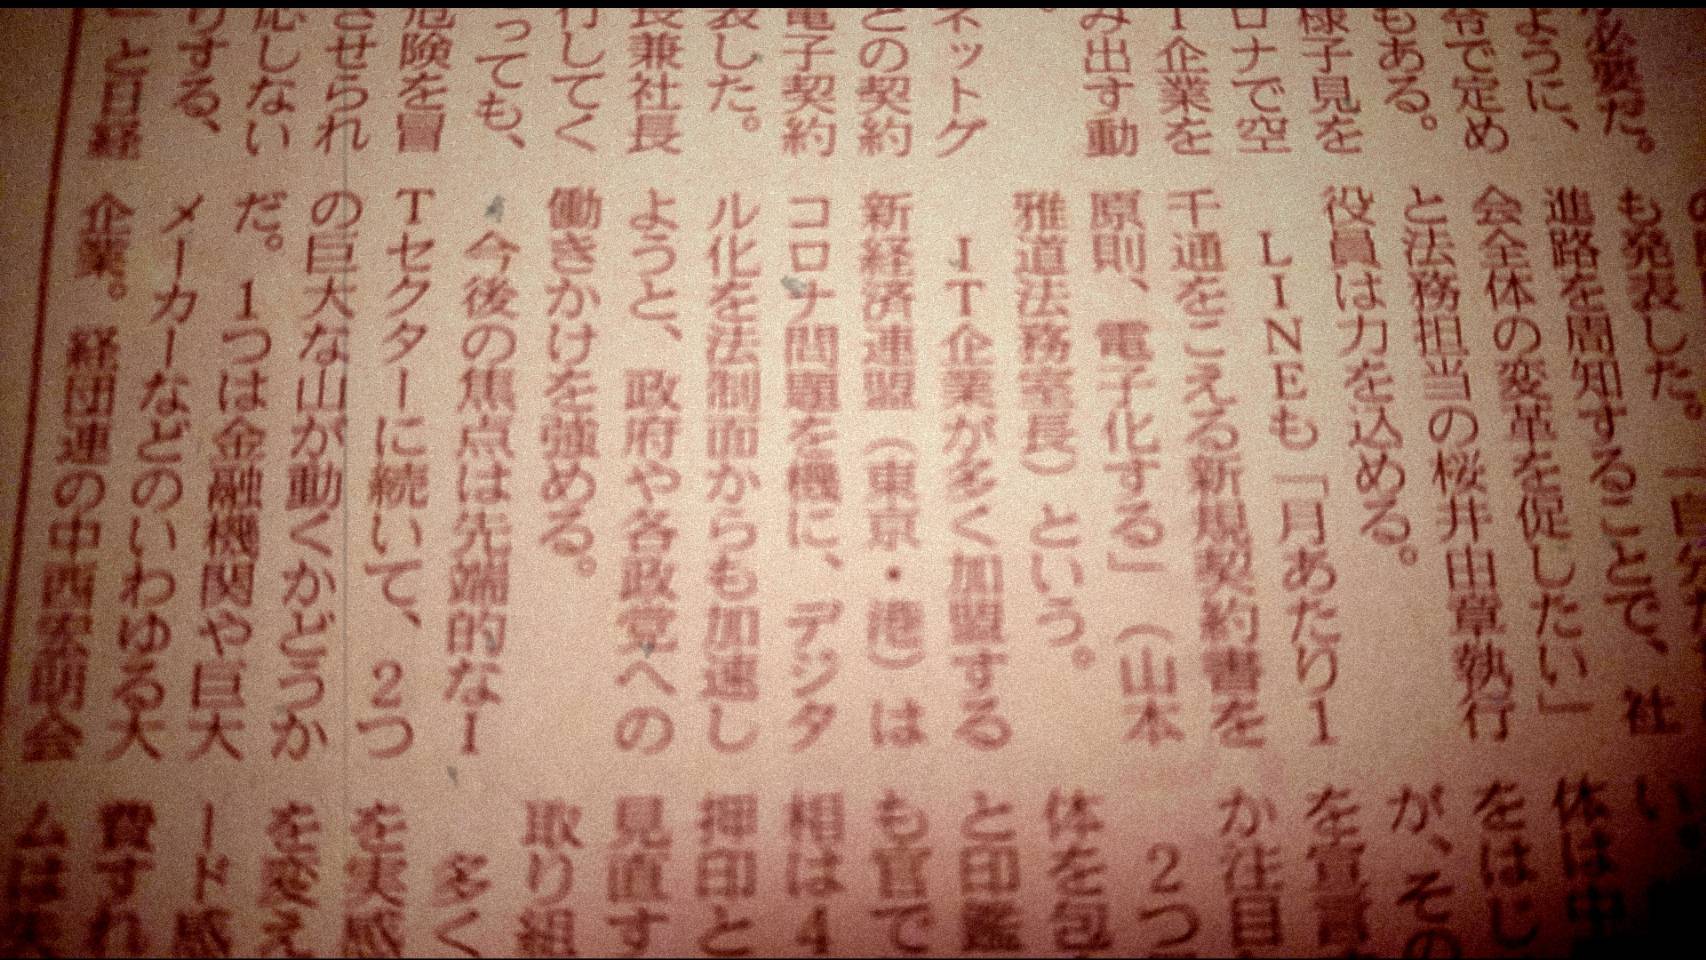 必要だ。
ように、
令で定め
もある。
様子見を
ロナで空
企業を
み出す動
。
ネットゲ
との契約
電子契約
表した。
長兼社長
行してく
っても、
危険を冒
させられ
応しない
りする、
と日経
も発表した。
進路を周知することで、社
会全体の変革を促したい」
と法務担当の桜井由章執行
役員は力を込める。
LINEも「月あたり1
千通をこえる新規契約書を
原則、電子化する」（山本
雅道法務室長）という。
IT企業が多く加盟する
新経済連盟（東京・港）は
コロナ問題を機に、デジタ
ル化を法制面からも加速し
ようと、政府や各政党への
働きかけを強める。
今後の焦点は先端的なI
Tセクターに続いて、2つ
の巨大な山が動くかどうか
だ。1つは金融機関や巨大
メーカーなどのいわゆる大
企業。経団連の中西宏明会
い。
体は中
をはじ
が、その
を宣言
か注目
2つ
体を包
と印鑑
も官で
相は4
押印と
見直す
取り組
多く
を実感
を変え
ード感
費すれ
ムは